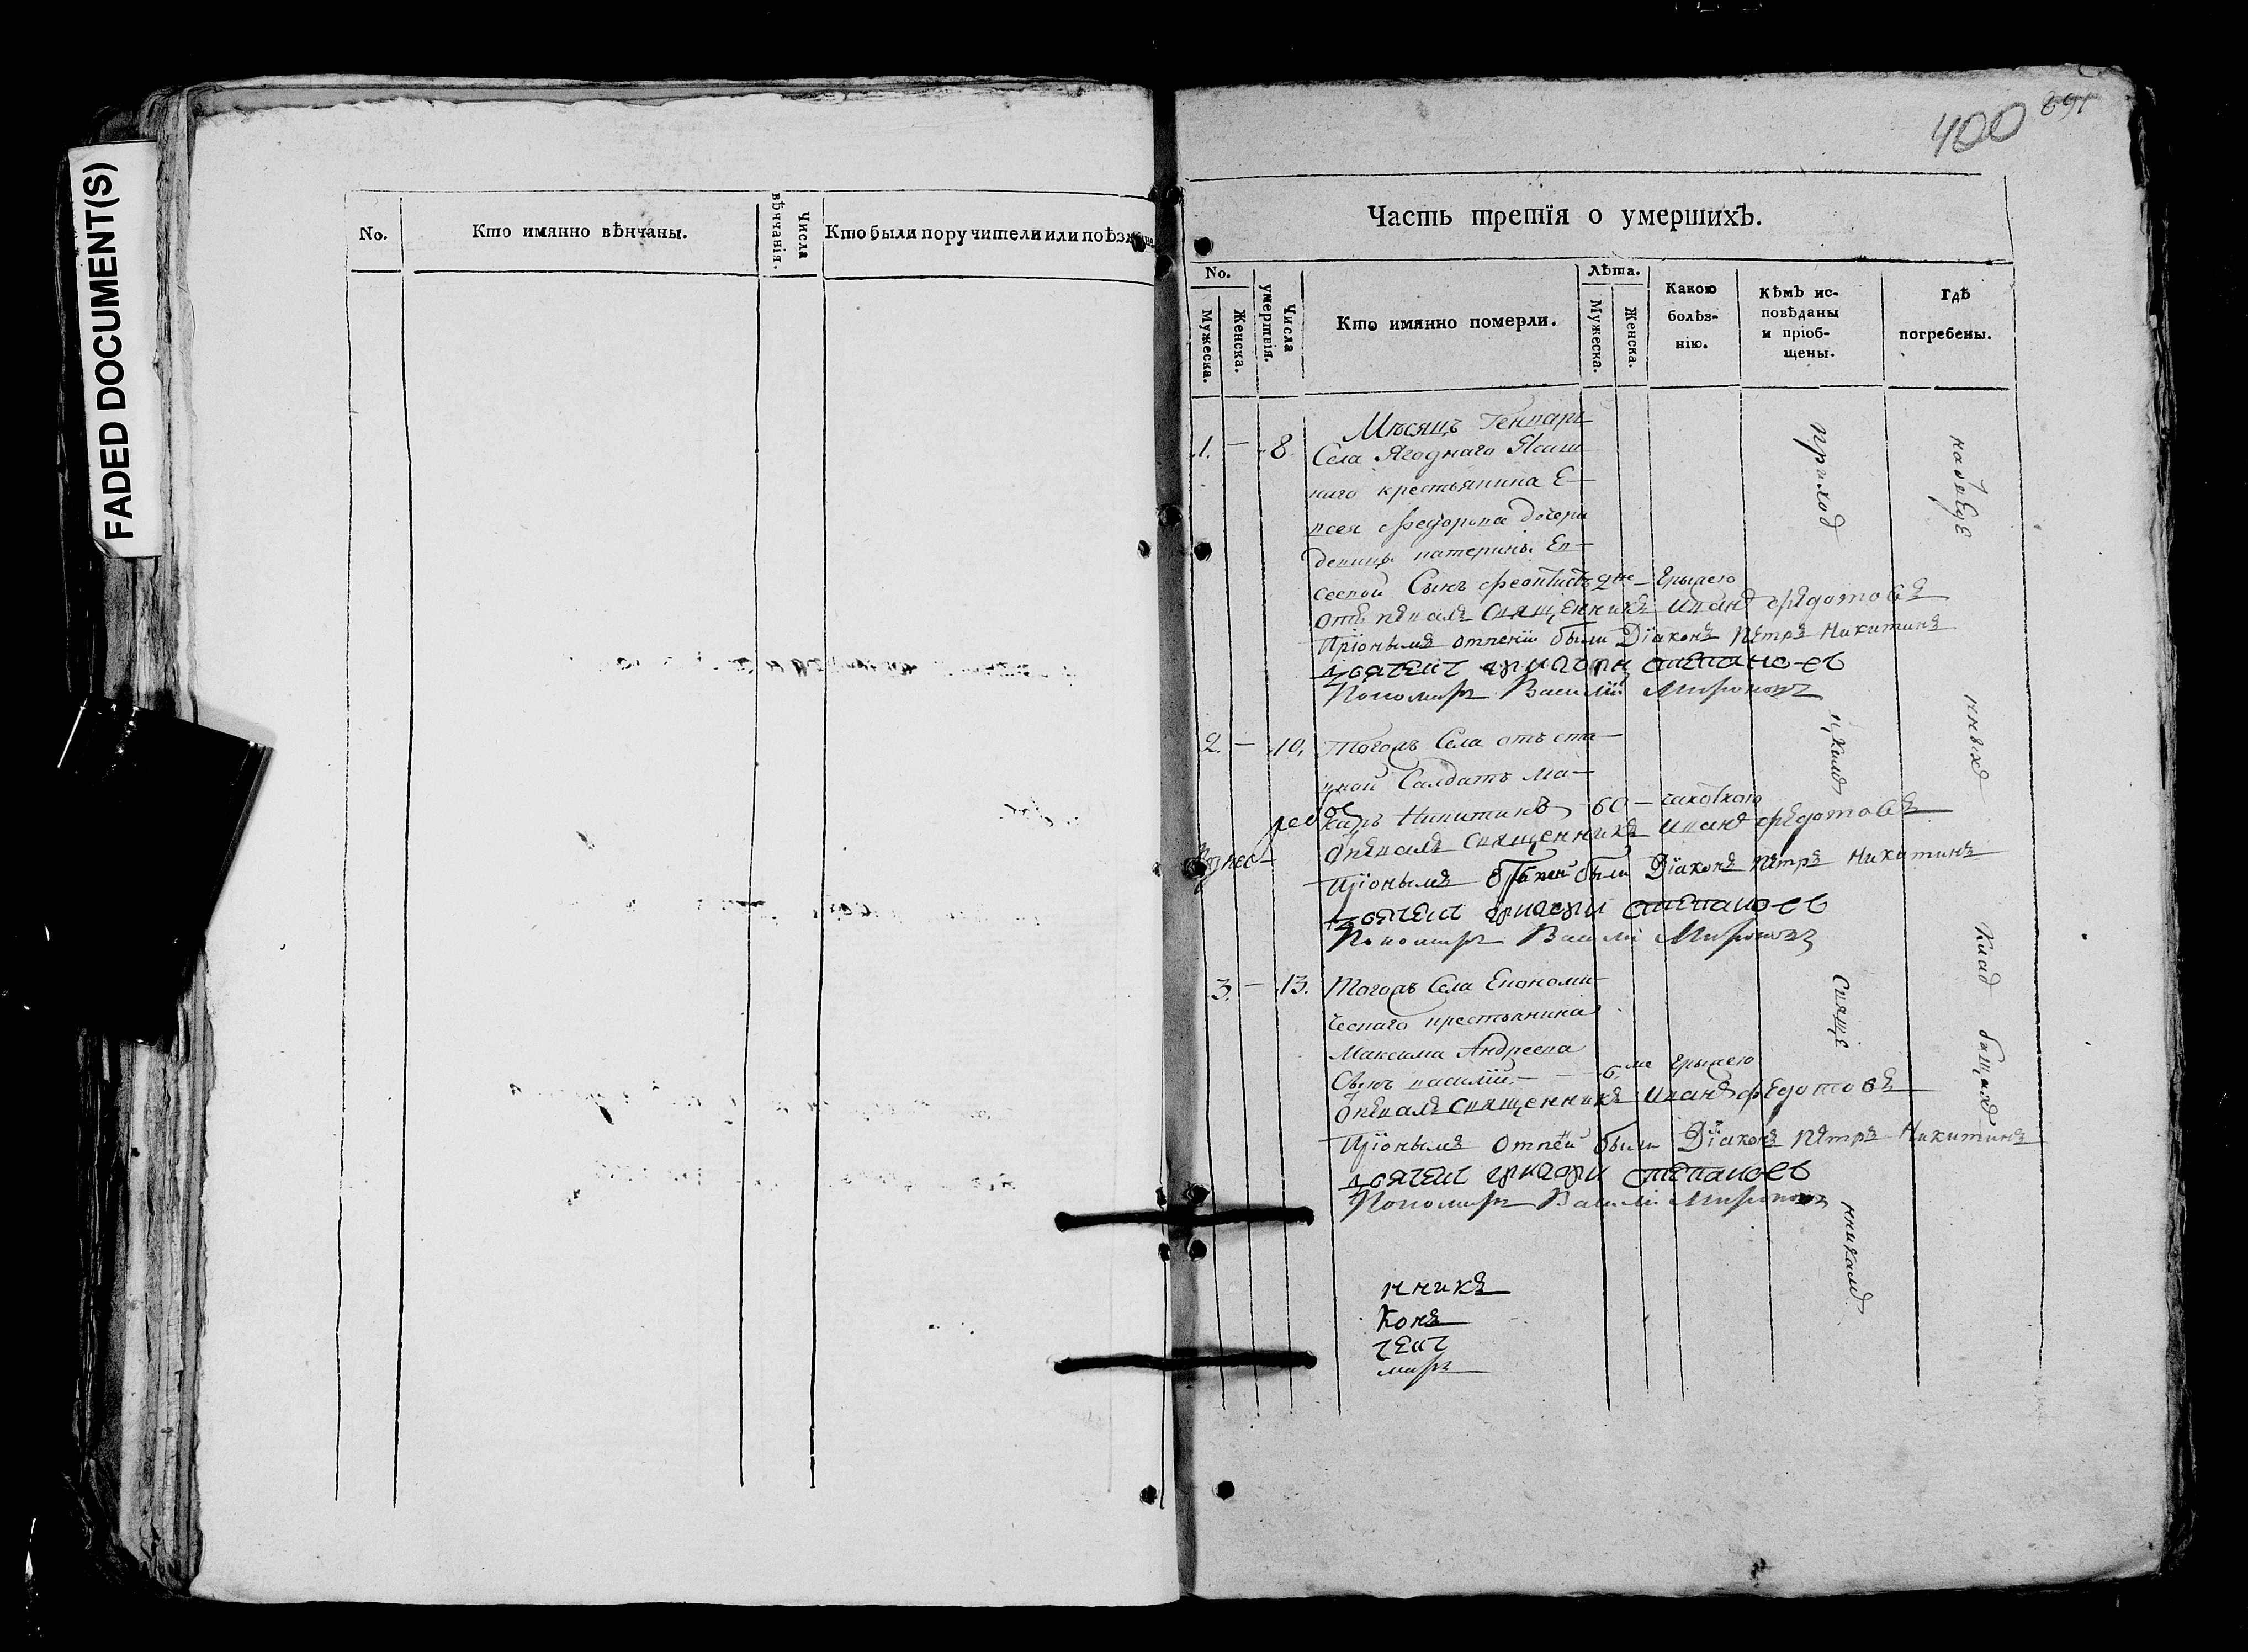 FADED DOCUMENT(S)
No.
Кто имянно вѣнчаны.
Числа вѣнчанія.
Кто были поручители или поѣз
400
691
Часть третія о умершихъ.
No.
Мужеска.
Женска.
Числа умертвія.
Кто имянно померли.
Лѣта.
Мужеска.
Женска.
Какою болѣз-
нію.
Кѣмъ ис-
повѣданы
и пріоб-
щены.
Гдѣ
погребены.
Мѣсяцъ Генварь
1. — 8 Села Ягоднаго Ясаш
наго крестьянина Е—
всея Федорова дочери
девицы катерины Ев—
сеевой Сынъ Феоктистъ — Грызею
отпѣвалъ священникъ иванъ Федотовъ
При ономъ отпении были Діаконъ Петръ Никитинъ
дьячекъ григори степановъ
Пономарь Василий Мироновъ
2. — 10. Тогожъ Села отъ ста—
вной Салдатъ Ма—
каръ Никитинъ 60 — чахоткою
Опѣвалъ священникъ иванъ Федотовъ
При ономъ были Діаконъ Петръ Никитинъ
дьячекъ григори степановъ
Пономарь Васили Мироновъ
3. — 13. Тогожъ Села Економи—
ческаго крестьянина
Максима Андреева
Сынъ василий — 6. ме Грызею
Опѣвалъ священникъ иванъ Федотовъ
При ономъ отпей были Діаконъ Петръ Никитинъ
дьячекъ григори степановъ
Пономарь Васили Мироновъ
нникъ
конъ
чекъ
марь
приход
цкимъ
Свяще
нникамъ
ннымъ
клад
бищахъ